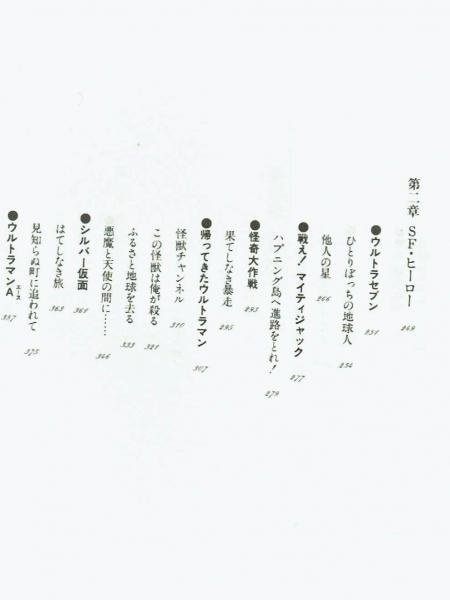 第二章 SF・ヒーロー 249
●ウルトラセブン 251
ひとりぼっちの地球人 254
他人の星 266
●戦え!マイティジャック 277
ハプニング島へ進路をとれ! 279
●怪奇大作戦 293
果てしなき暴走 295
●帰ってきたウルトラマン 307
怪獣チャンネル 310
この怪獣は俺が殺る 321
ふるさと地球を去る 333
悪魔と天使の間に…… 346
●シルバー仮面 361
はてしなき旅 363
見知らぬ町に追われて 375
●ウルトラマンA エース 387